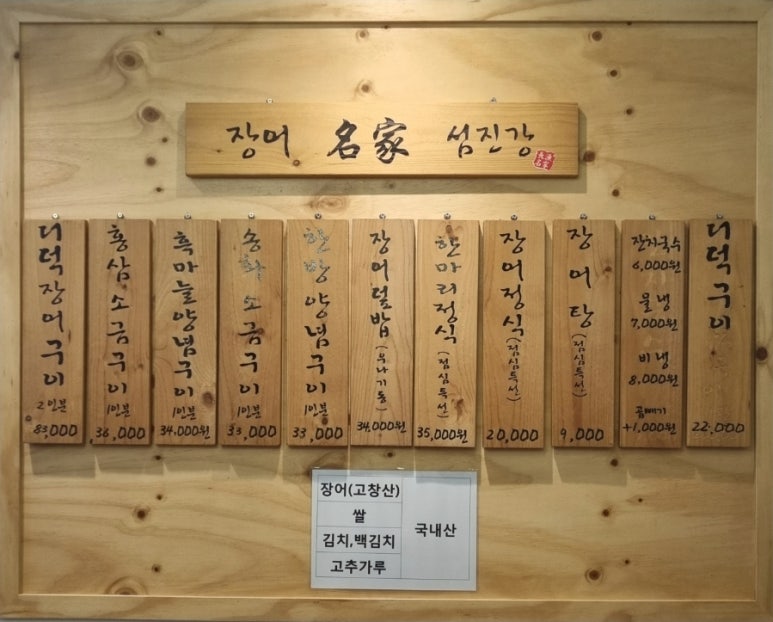 장어 名家 섬진강
더덕장어구이 2인분 83,000
홍삼소금구이 1인분 36,000
흑마늘양념구이 1인분 34,000원
송화소금구이 1인분 33,000
한방양념구이 1인분 33,000
장어덮밥 (우나기동) 34,000원
한마리정식 (점심특선) 35,000원
장어정식 (점심특선) 20,000
장어탕 (점심특선) 9,000
잔치국수
6,000원
물냉
7,000원
비냉
8,000원
곱빼기
+1,000원
더덕구이 22,000
장어(고창산)
쌀
김치,백김치
고추가루
국내산